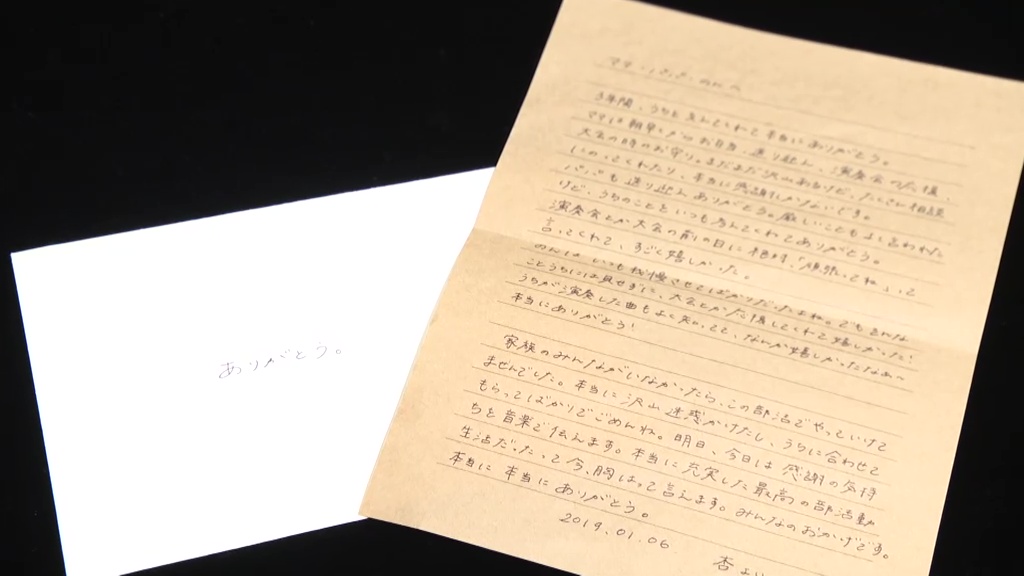 ありがとう。
ママ、パパ、のんへ
3年間、うちを支えてくれて本当にありがとう。
ママは朝早くからお弁当、送り迎え、演奏会の応援、
大会の時のお守り。まだまだ沢山あるけど、たくさん相談
にのってくれたり、本当に感謝しかないです。
パパも送り迎えありがとう。厳しいこともよく言われた
けど、うちのことをいつも考えてくれてありがとう。
演奏会とか大会の前の日に絶対、「頑張ってね」って
言ってくれて、すごく嬉しかった。
のんは、いつも我慢させてばかりだったよね。でもそんな
ことうちには見せずに、大会とか応援してくれて嬉しかった!
うちが演奏した曲もよく知ってて、なんか嬉しかったなあ〜
本当にありがとう!
家族のみんながいなかったら、この部活でやっていけて
ませんでした。本当に沢山迷惑かけたし、うちに合わせて
もらってばかりでごめんね。明日、今日は感謝の気持
ちを音楽で伝えます。本当に充実した最高の部活動
生活だったって今、胸はって言えます。みんなのおかげです。
本当に本当にありがとう。
2019.01.06
杏より